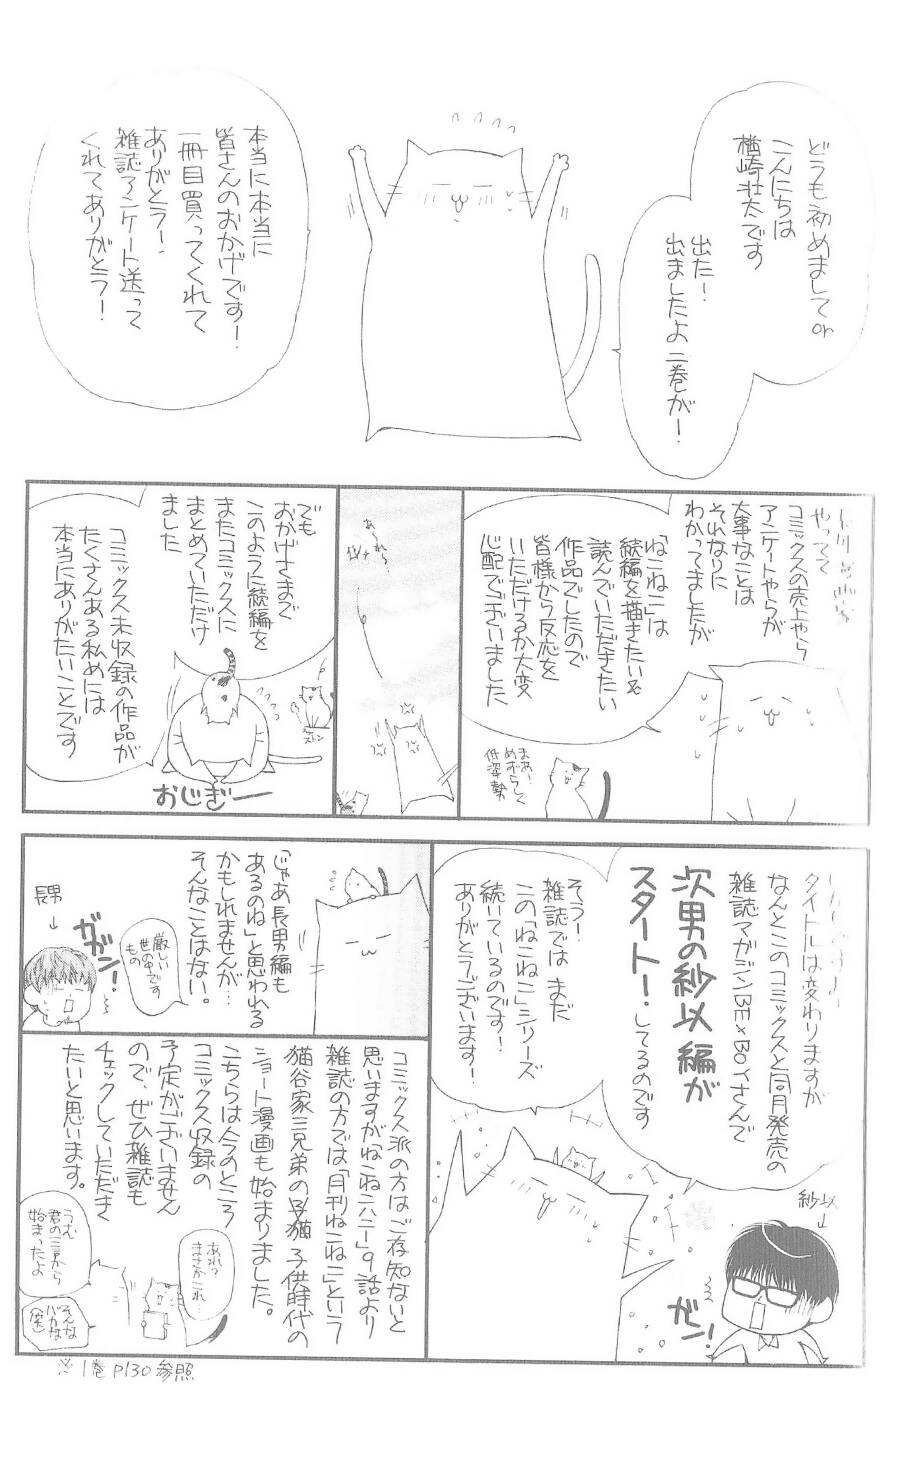 どうも初めましてor
こんにちは
楢崎壮太です
出た！
出ましたよ二巻が！
本当に本当に
皆さんのおかげです！
一冊目買ってくれて
ありがとう！
雑誌アンケート送って
くれてありがとう！
やってて
コミックスの売上やら
アンケートやらが
大事なことは
それなりに
わかってましたが
「ねこねこ」は
続編を描きたい&
読んでいただきたい
作品でしたので
皆様から反応を
いただけるか大変
心配でございました
まあ！
めずらしく
低姿勢
あ〜れ〜
でも
おかげさまで
このように続編を
またコミックスに
まとめていただけ
ました
ストン
おじぎー
コミックス未収録の作品が
たくさんある私めには
本当にありがたいことです
タイトルは変わりますが
なんとこのコミックスと同月発売の
雑誌マガジンBE×BOYさんで
次男の紗以編が
スタート！してるのです
そう！
雑誌ではまだ
この「ねこねこ」シリーズ
続いているのです！
ありがとうございます！
紗以
ガン！
「じゃあ長男編も
あるのね」と思われる
かもしれませんが…
そんなことはない。
厳しい
世の中です
もの
ガガン！
長男
コミックス派の方はご存知ないと
思いますが「ねこねこハニー」9話より
雑誌の方では「月刊ねこねこ」という
猫谷家三兄弟の子猫子供時代の
ショート漫画も始まりました。
こちらは今のところ
コミックス収録の
予定がございません
ので、ぜひ雑誌も
チェックしていただき
たいと思います。
あれっ
まさかこれ…
うむ
君の一言から
始まったよ
そんな
バカな
(笑)
※1巻P130参照